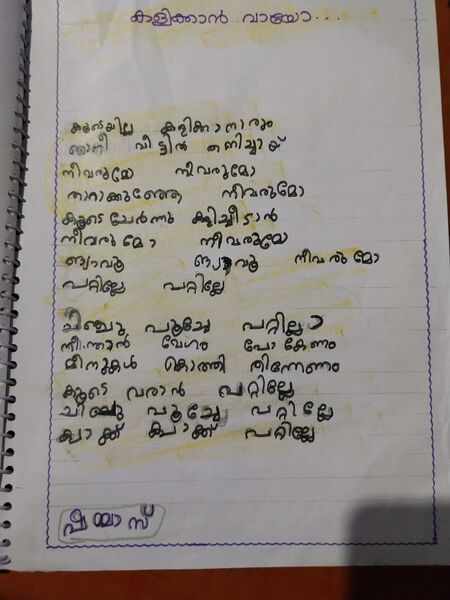 കളിക്കാൻ വായോ...
കൂടെയില്ല കളിക്കാനാരും
ഞാനീ വീട്ടിൽ തനിച്ചായ്
നീവരുമോ നീവരുമോ
താറാക്കുഞ്ഞേ നീവരുമോ
കൂടെചേർന്നു കളിച്ചീടാൻ
നീവരുമോ നീവരുമോ
ങ്യാവൂ ങ്യാവൂ നീവരുമോ
പറ്റില്ലേ പറ്റില്ലേ
ചിഞ്ചു പൂച്ചേ പറ്റില്ലാ
നീന്താൻ വേഗം പോകേണം
മീനുകൾ കൊത്തി തിന്നേണം
കൂടെ വരാൻ പറ്റില്ലേ
ചിഞ്ചു പൂച്ചേ പറ്റില്ലേ
ക്വാക്ക് ക്വാക്ക് പറ്റില്ലേ